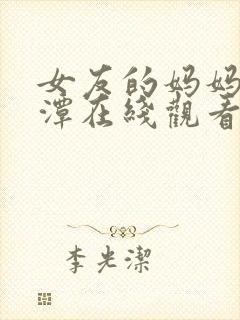 女友的妈妈
潭在綫觀看
李光潔